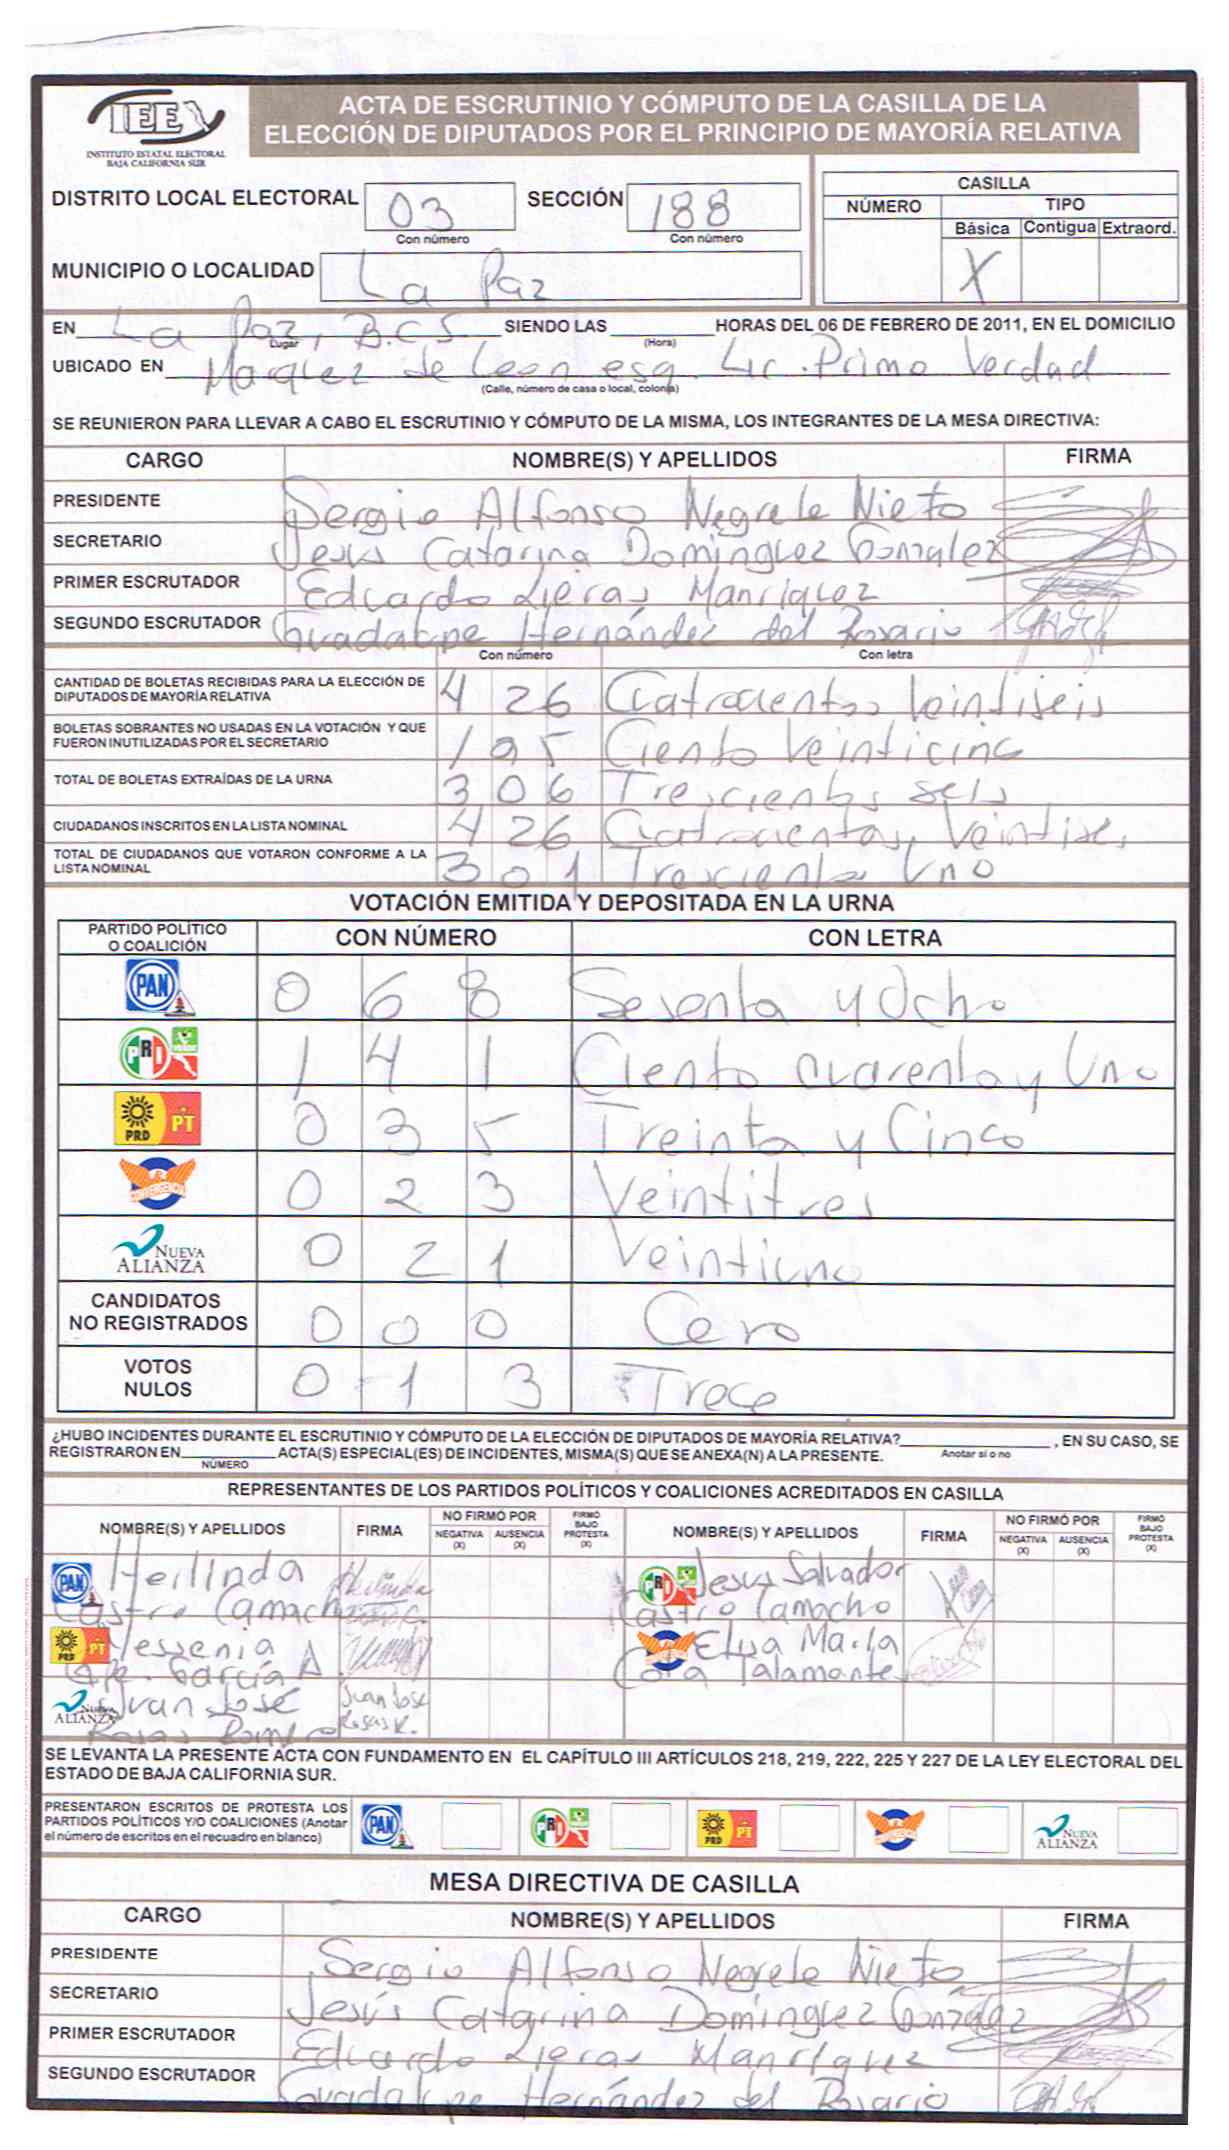 IEE
INSTITUTO ESTATAL ELECTORAL
BAJA CALIFORNIA SUR
ACTA DE ESCRUTINIO Y CÓMPUTO DE LA CASILLA DE LA
ELECCIÓN DE DIPUTADOS POR EL PRINCIPIO DE MAYORÍA RELATIVA
DISTRITO LOCAL ELECTORAL 03 SECCIÓN 188
Con número Con número
CASILLA
NÚMERO TIPO
Básica Contigua Extraord.
X
MUNICIPIO O LOCALIDAD La Paz
EN La Paz, B.C.S SIENDO LAS HORAS DEL 06 DE FEBRERO DE 2011, EN EL DOMICILIO
Lugar (Hora)
UBICADO EN Marquez de Leon esq. Lic. Primo Verdad
(Calle, número de casa o local, colonia)
SE REUNIERON PARA LLEVAR A CABO EL ESCRUTINIO Y CÓMPUTO DE LA MISMA, LOS INTEGRANTES DE LA MESA DIRECTIVA:
CARGO NOMBRE(S) Y APELLIDOS FIRMA
PRESIDENTE Sergio Alfonso Negrete Nieto
SECRETARIO Jesús Catarina Dominguez Gonzalez
PRIMER ESCRUTADOR Eduardo Lieras Manriquez
SEGUNDO ESCRUTADOR Guadalupe Hernández del Rosario
Con número Con letra
CANTIDAD DE BOLETAS RECIBIDAS PARA LA ELECCIÓN DE
DIPUTADOS DE MAYORÍA RELATIVA 4 26 Cuatrocientos Veintiseis
BOLETAS SOBRANTES NO USADAS EN LA VOTACIÓN Y QUE
FUERON INUTILIZADAS POR EL SECRETARIO Ciento Veinticinc
TOTAL DE BOLETAS EXTRAÍDAS DE LA URNA 3 0 6 Trescientos seis
CIUDADANOS INSCRITOS EN LA LISTA NOMINAL 4 26 Cuatrocientos
TOTAL DE CIUDADANOS QUE VOTARON CONFORME A LA
LISTA NOMINAL 3 0 1 Trescientos Uno
VOTACIÓN EMITIDA Y DEPOSITADA EN LA URNA
PARTIDO POLÍTICO
O COALICIÓN CON NÚMERO CON LETRA
PAN 0 6 8 Sesenta y Ocho
PRI VERDE 1 4 1 Ciento cuarenta y Uno
PRD PT 0 3 5 Treinta y Cinco
0 2 3 Veintitres
NUEVA
ALIANZA 0 2 1 Veintiuno
CANDIDATOS
NO REGISTRADOS 0 0 0 Cero
VOTOS
NULOS 0 1 3 Trece
¿HUBO INCIDENTES DURANTE EL ESCRUTINIO Y CÓMPUTO DE LA ELECCIÓN DE DIPUTADOS DE MAYORÍA RELATIVA? , EN SU CASO, SE
Anotar sí o no
REGISTRARON EN ACTA(S) ESPECIAL(ES) DE INCIDENTES, MISMA(S) QUE SE ANEXA(N) A LA PRESENTE.
NÚMERO
REPRESENTANTES DE LOS PARTIDOS POLÍTICOS Y COALICIONES ACREDITADOS EN CASILLA
NOMBRE(S) Y APELLIDOS FIRMA NO FIRMÓ POR NEGATIVA (X) AUSENCIA (X) FIRMÓ BAJO PROTESTA (X) NOMBRE(S) Y APELLIDOS FIRMA NO FIRMÓ POR NEGATIVA (X) AUSENCIA (X) FIRMÓ BAJO PROTESTA (X)
PAN Herlinda PRI Jesus Salvador
Castro Camacho Castro Camacho
PRD PT Yessenia Elva María
García A. Cota Talamantes
NUEVA ALIANZA Juan José Juan Jose
Rosas Rosas R.
SE LEVANTA LA PRESENTE ACTA CON FUNDAMENTO EN EL CAPÍTULO III ARTÍCULOS 218, 219, 222, 225 Y 227 DE LA LEY ELECTORAL DEL
ESTADO DE BAJA CALIFORNIA SUR.
PRESENTARON ESCRITOS DE PROTESTA LOS
PARTIDOS POLÍTICOS Y/O COALICIONES (Anotar
el número de escritos en el recuadro en blanco)
PAN PRI PRD PT NUEVA ALIANZA
MESA DIRECTIVA DE CASILLA
CARGO NOMBRE(S) Y APELLIDOS FIRMA
PRESIDENTE Sergio Alfonso Negrete Nieto
SECRETARIO Jesús Catarina Domínguez González
PRIMER ESCRUTADOR Eduardo Lieras Manríquez
SEGUNDO ESCRUTADOR Guadalupe Hernández del Rosario